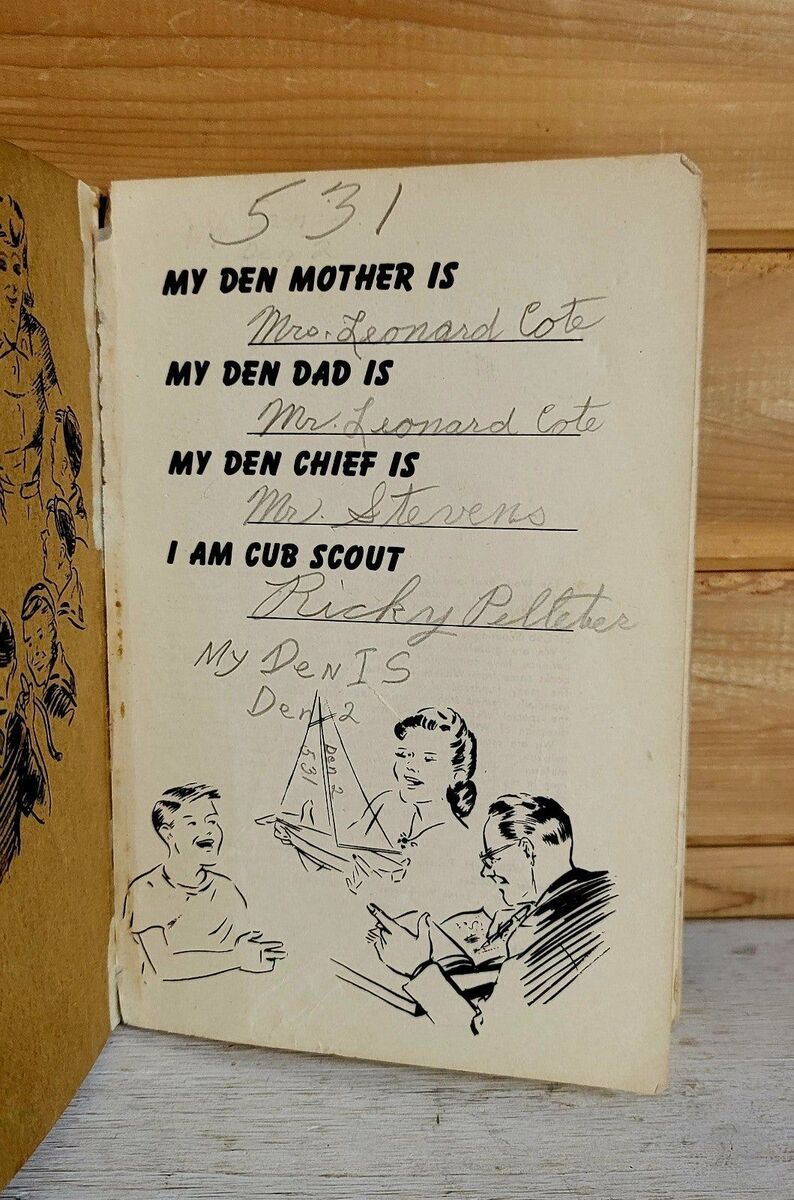 531
MY DEN MOTHER IS
Mrs. Leonard Cote
MY DEN DAD IS
Mr. Leonard Cote
MY DEN CHIEF IS
Mr. Stevens
I AM CUB SCOUT
Ricky Pelletier
My Den IS
Den 2
531
Den 2